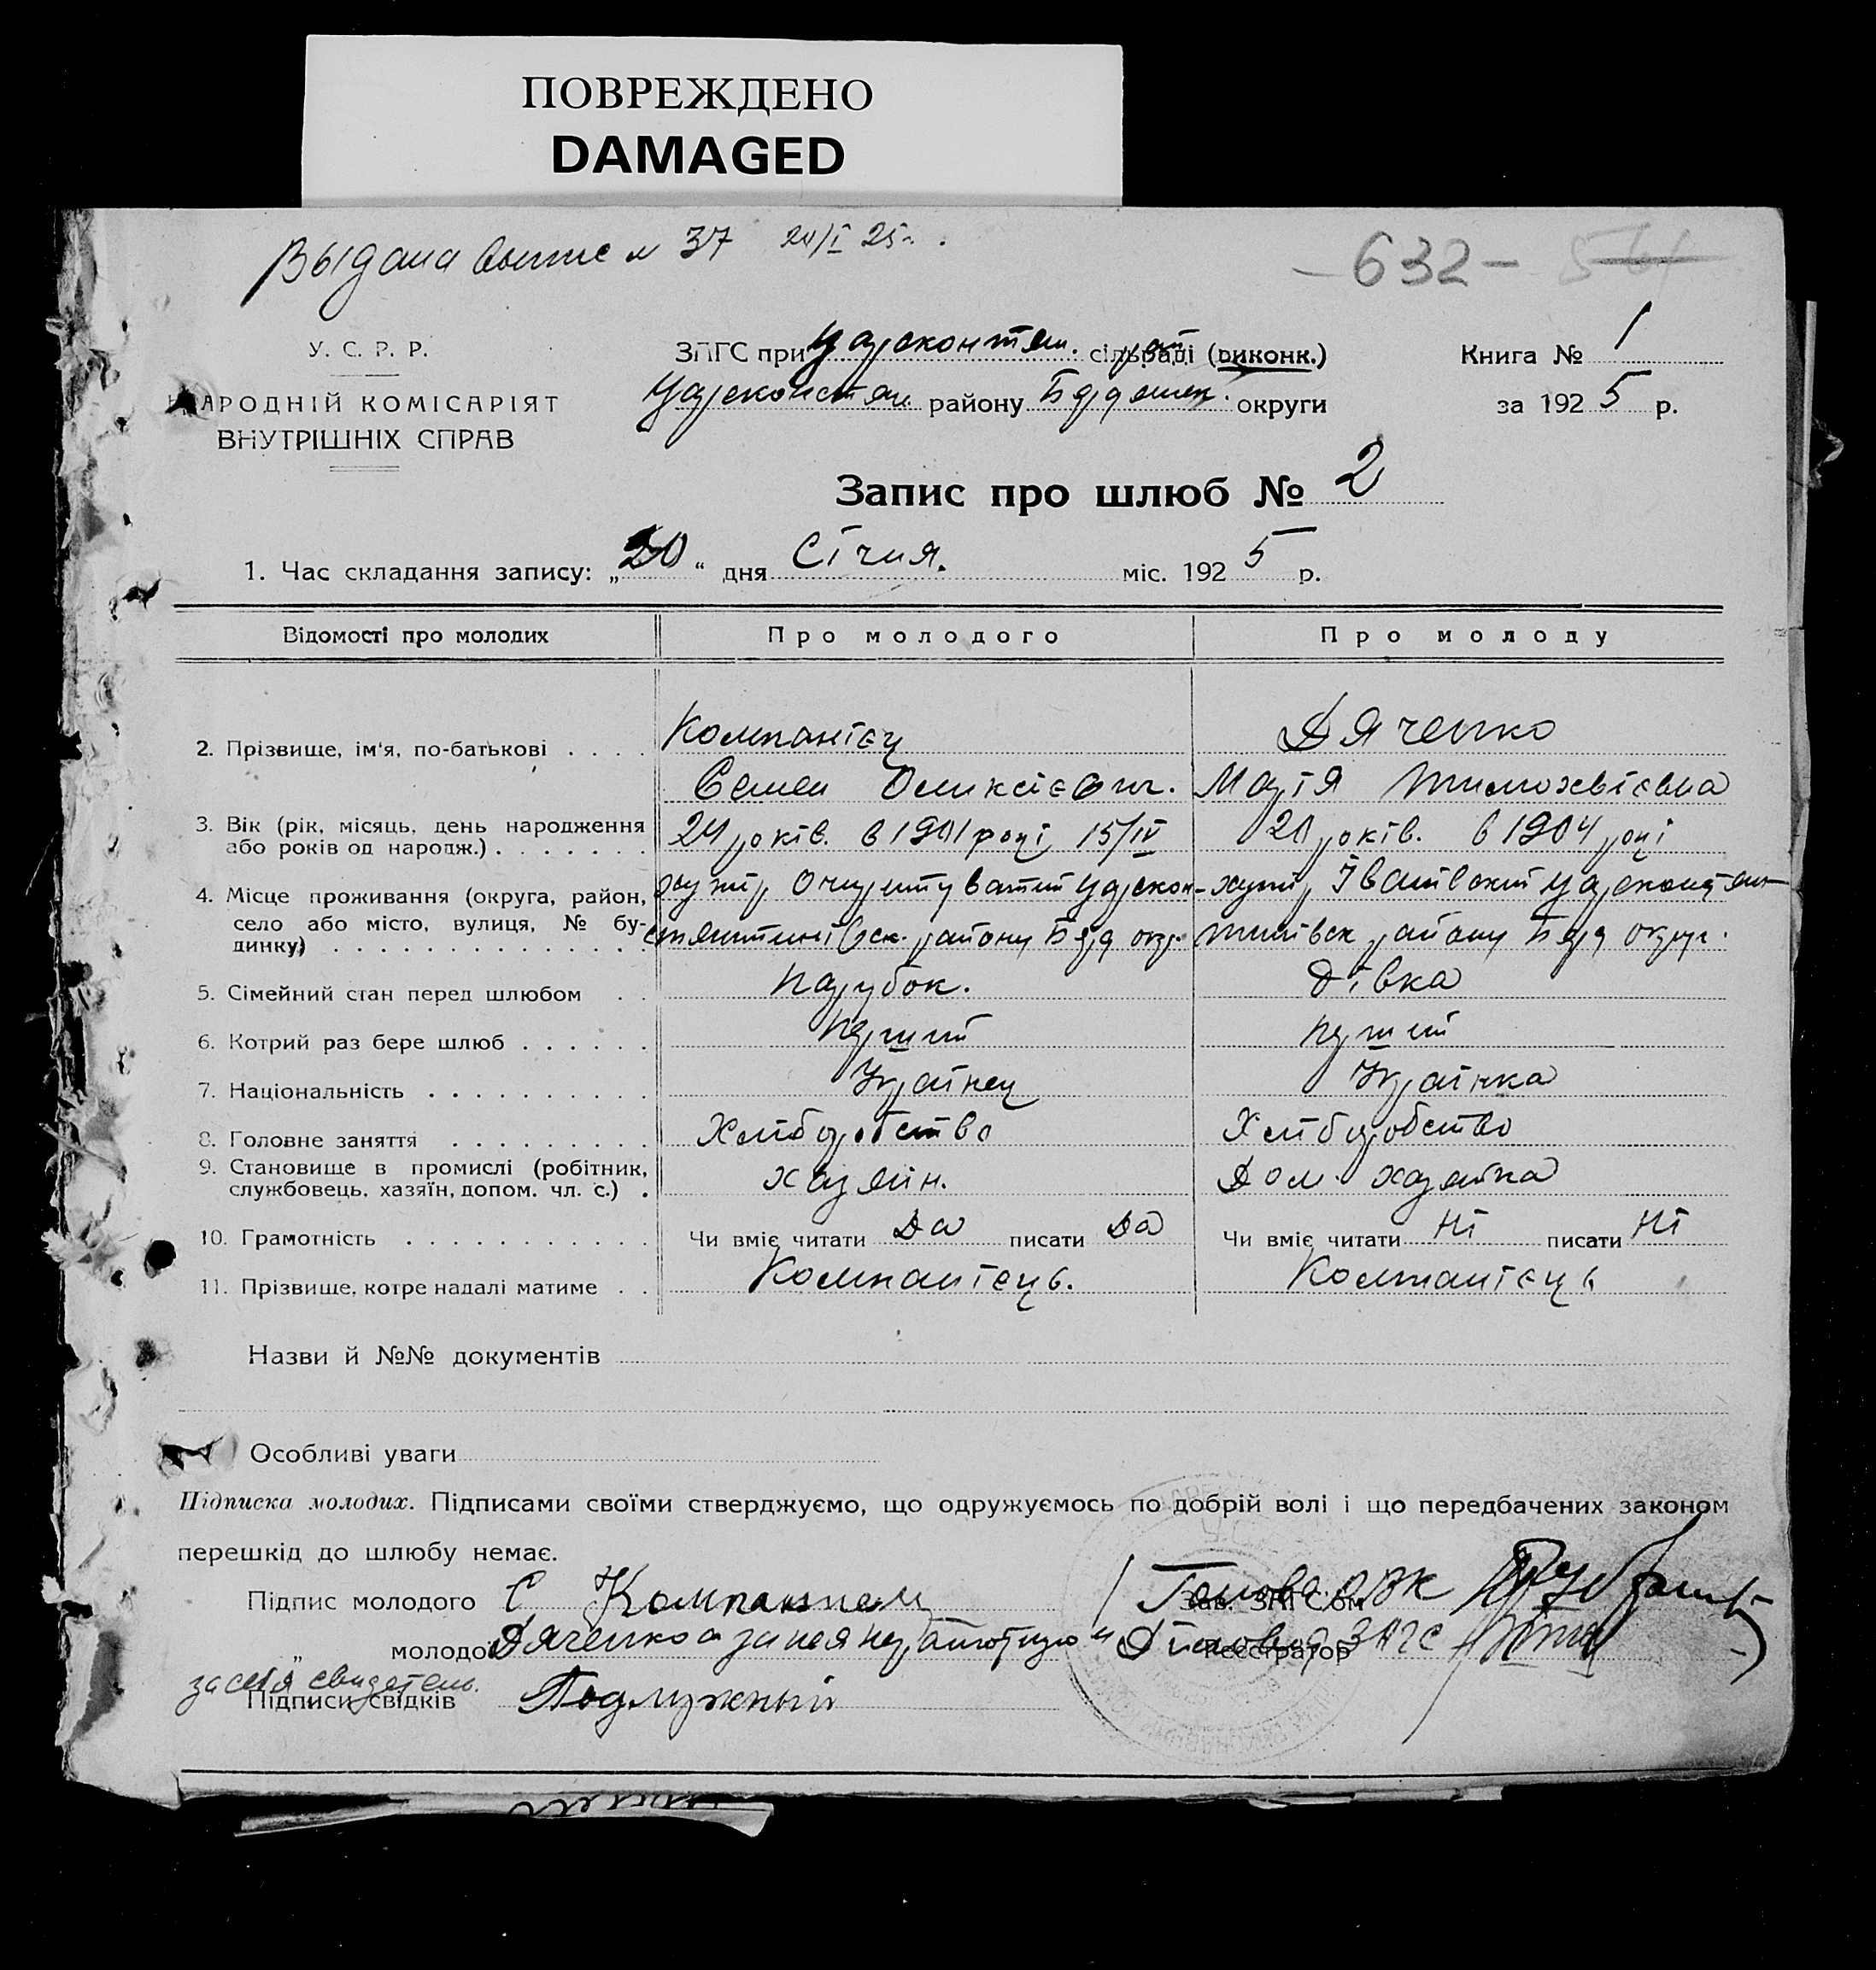 ПОВРЕЖДЕНО
DAMAGED
Выдана выпис № 37 20/I 25г.
- 632 -
У. С. Р. Р.
НАРОДНІЙ КОМІСАРІЯТ
ВНУТРІШНІХ СПРАВ
ЗАГС при Царсконстян. сільраді (виконк.)
Царсконстян. району Бердянск. округи
Книга № 1
за 1925 р.
Запис про шлюб № 2
1. Час складання запису: „20“ дня Січня. міс. 1925 р.
Відомості про молодих Про молодого Про молоду
2. Прізвище, ім'я, по-батькові . . . . Компанієц Дяченко
Семен Оликсієвич. Марія Тимохвієвна
3. Вік (рік, місяць, день народження або років од народж.) . . . . . . . 24 років. в 1901 році 15/IV 20 років. в 1904 році
4. Місце проживання (округа, район, село або місто, вулиця, № будинку) хутір Царскон- стянтинівск. району Бердя окр. хутір Іванівский Царсконстян- тинівск району Бердя округ.
5. Сімейний стан перед шлюбом . . Парубок. Дівка
6. Котрий раз бере шлюб . . . . . . перший перший
7. Національність . . . . . . . . . . Українец Українка
8. Головне заняття . . . . . . . . . Хлиборобство Хлиборобство
9. Становище в промислі (робітник, службовець, хазяїн, допом. чл. с.) . хазяін. Дом. хазяйка
10. Грамотність . . . . . . . . . . . Чи вміє читати Да писати Да Чи вміє читати Ні писати Ні
11. Прізвище, котре надалі матиме . . Компанієць. Компанієць
Назви й №№ документів
Особливі уваги
Підписка молодих. Підписами своїми стверджуємо, що одружуємось по добрій волі і що передбачених законом
перешкід до шлюбу немає.
Підпис молодого С Компаниец Голова РВК
Зав. ЗАГС'ом
„ молодої Дяченко а за нея неграмотную и Діловод ЗАГС
Реєстратор
за себя свидетель.
Підписи свідків Подлужный